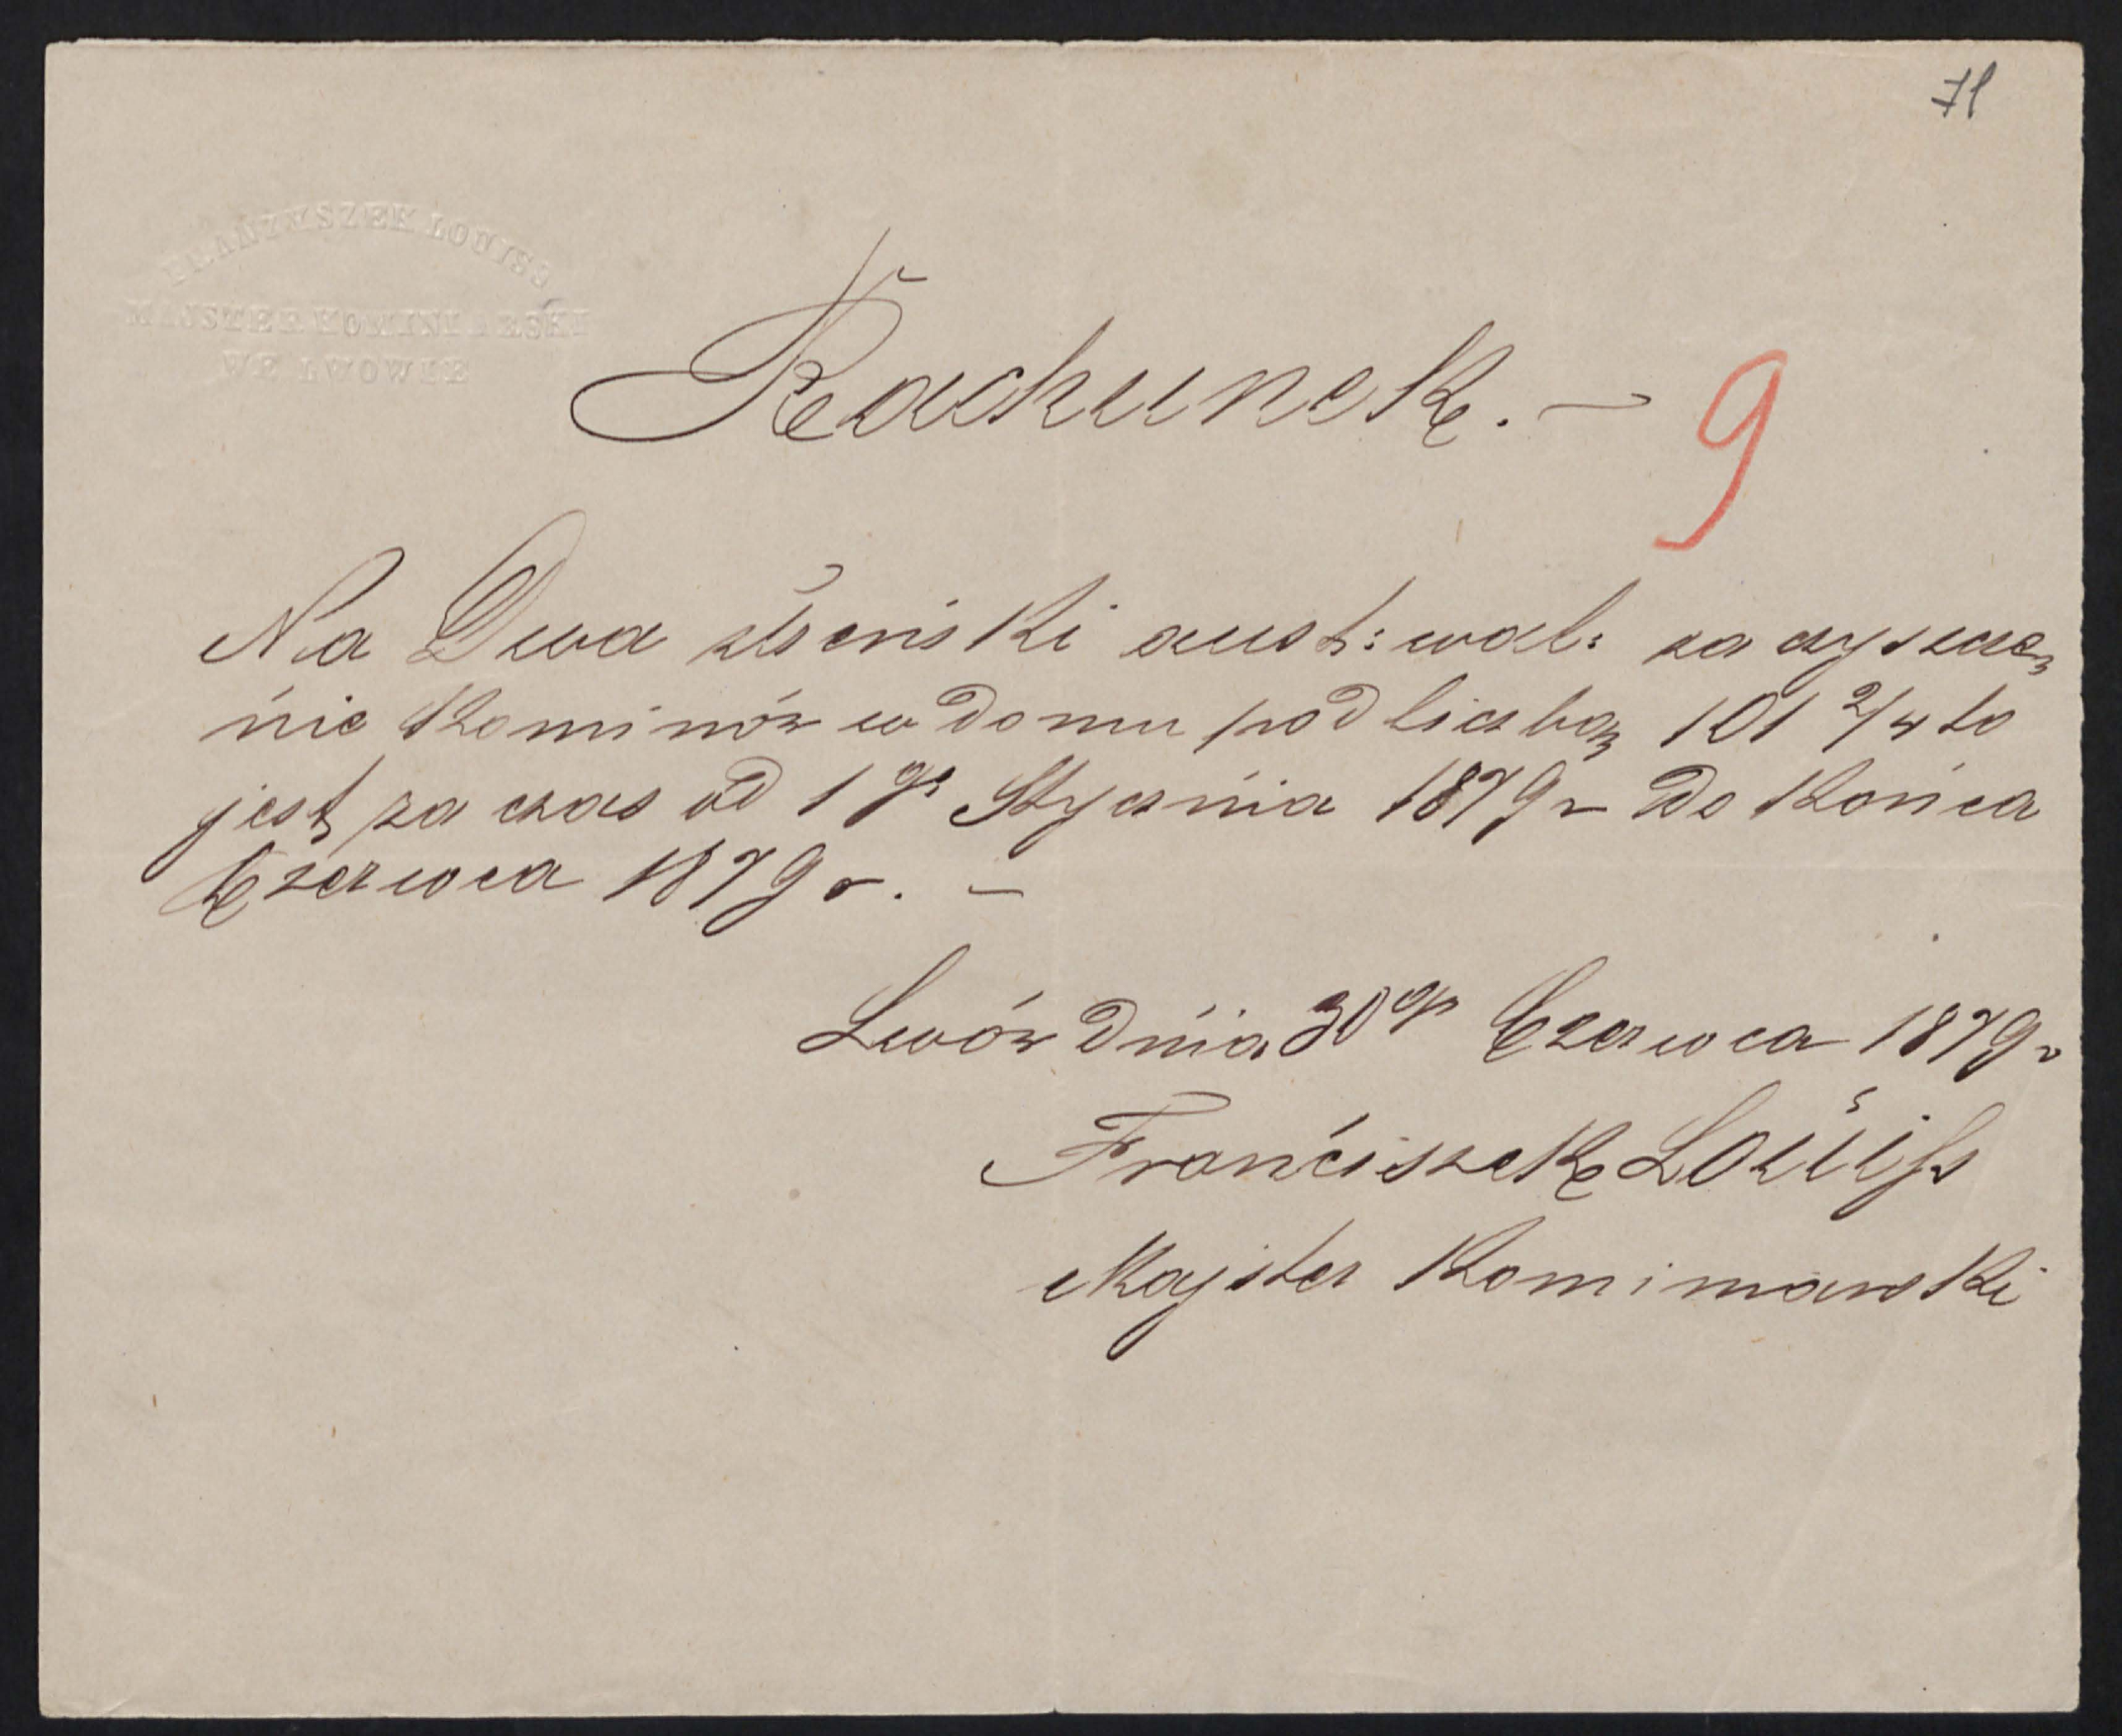 71
FRANZYSZEK LOUIS
MAJSTER KOMINIARSKI
WE LWOWIE
Rachunek. —
9
Na Dwa złr aust: wal: za czyszcze,
nie Kominów w domu pod liczbą 101 2/4 to
jest za czas od 1go Stycznia 1879 r do Końca
Czerwca 1879 r. —
Lwów dnia 30go Czerwca 1879 r
Franciszek Louiss
Majster Kominiarski